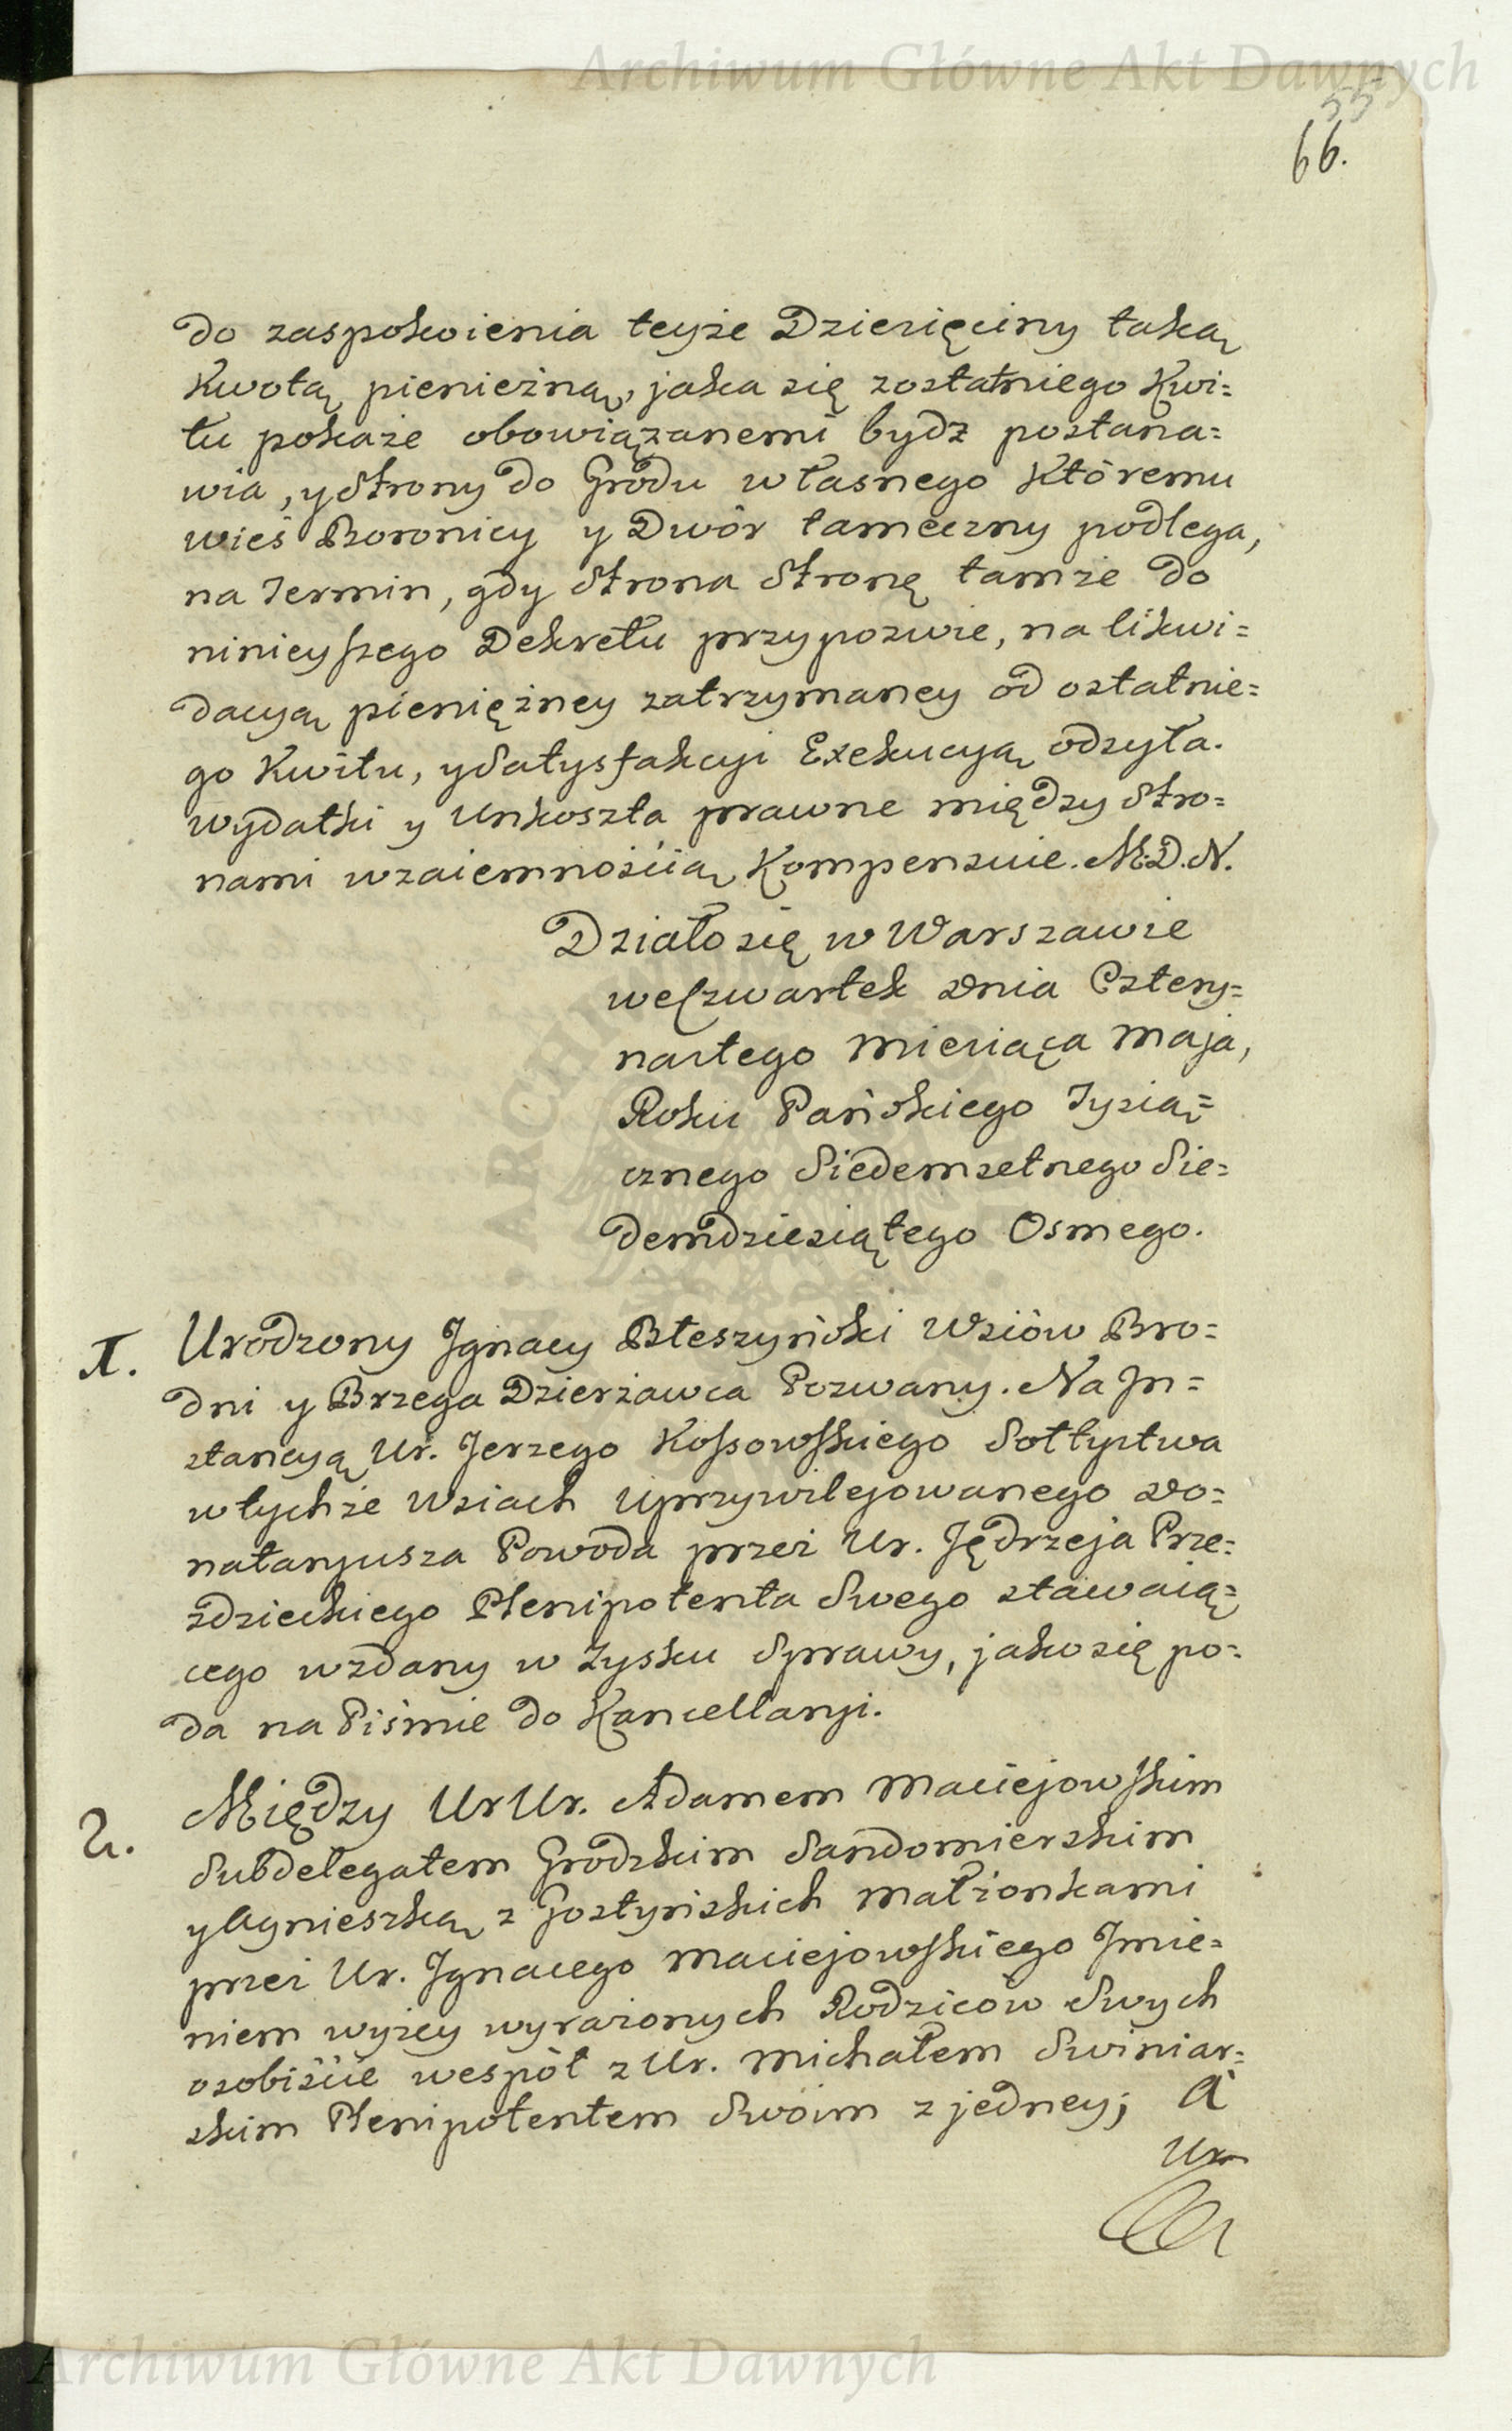 Archiwum Główne Akt Dawnych
55
66.
do zaspokoienia teyże Dziesięciny taką
Kwotą pieniężną, jaka się zostatniego Kwi=
tu pokaże obowiązanemi bydz postana=
wia, y Strony do Grodu własnego Któremu
wieś Boronicy y Dwór tameczny podlega,
na Termin, gdy Strona Stronę tamże do
ninieyszego Dekretu przypozwie, na likwi=
dacyą pieniężney zatrzymaney od ostatnie=
go Kwitu, y Satysfakcyi Exekucyą odsyła.
wydatki y Unkoszta prawne między Stro=
nami wzaiemnościią Kompensuie. M.D.N.
Działo się w Warszawie
we Czwartek dnia Cztery=
nastego Miesiąca Maja,
Roku Pańskiego Tysią=
cznego Siedemsetnego Sie=
demdziesiątego Osmego.
1. Urodzony Jgnacy Błeszyński Wsiów Bro=
dni y Brzega Dzierżawca Pozwany. Na Jn=
stancyą Ur. Jerzego Kossowskiego Sołtystwa
w tychże Wsiach Uprzywilejowanego do=
nataryusza Powoda przez Ur. Jędrzeja Prze=
zdzieckiego Plenipotenta Swego stawaią=
cego wzdany w Zysku Sprawy, jako się po=
da na Piśmie do Kancellaryi.
2. Między UrUr. Adamem Maciejowskim
Subdelegatem Grodzkim Sandomierskim
y Agnieszką z Gostyńskich Małżonkami
przez Ur. Jgnacego Maciejowskiego Jmie=
niem wyżey wyrażonych Rodziców Swych
osobiście wespół z Ur. Michałem Swiniar=
skim Plenipotentem Swoim z jedney; A
Ur.
Archiwum Główne Akt Dawnych